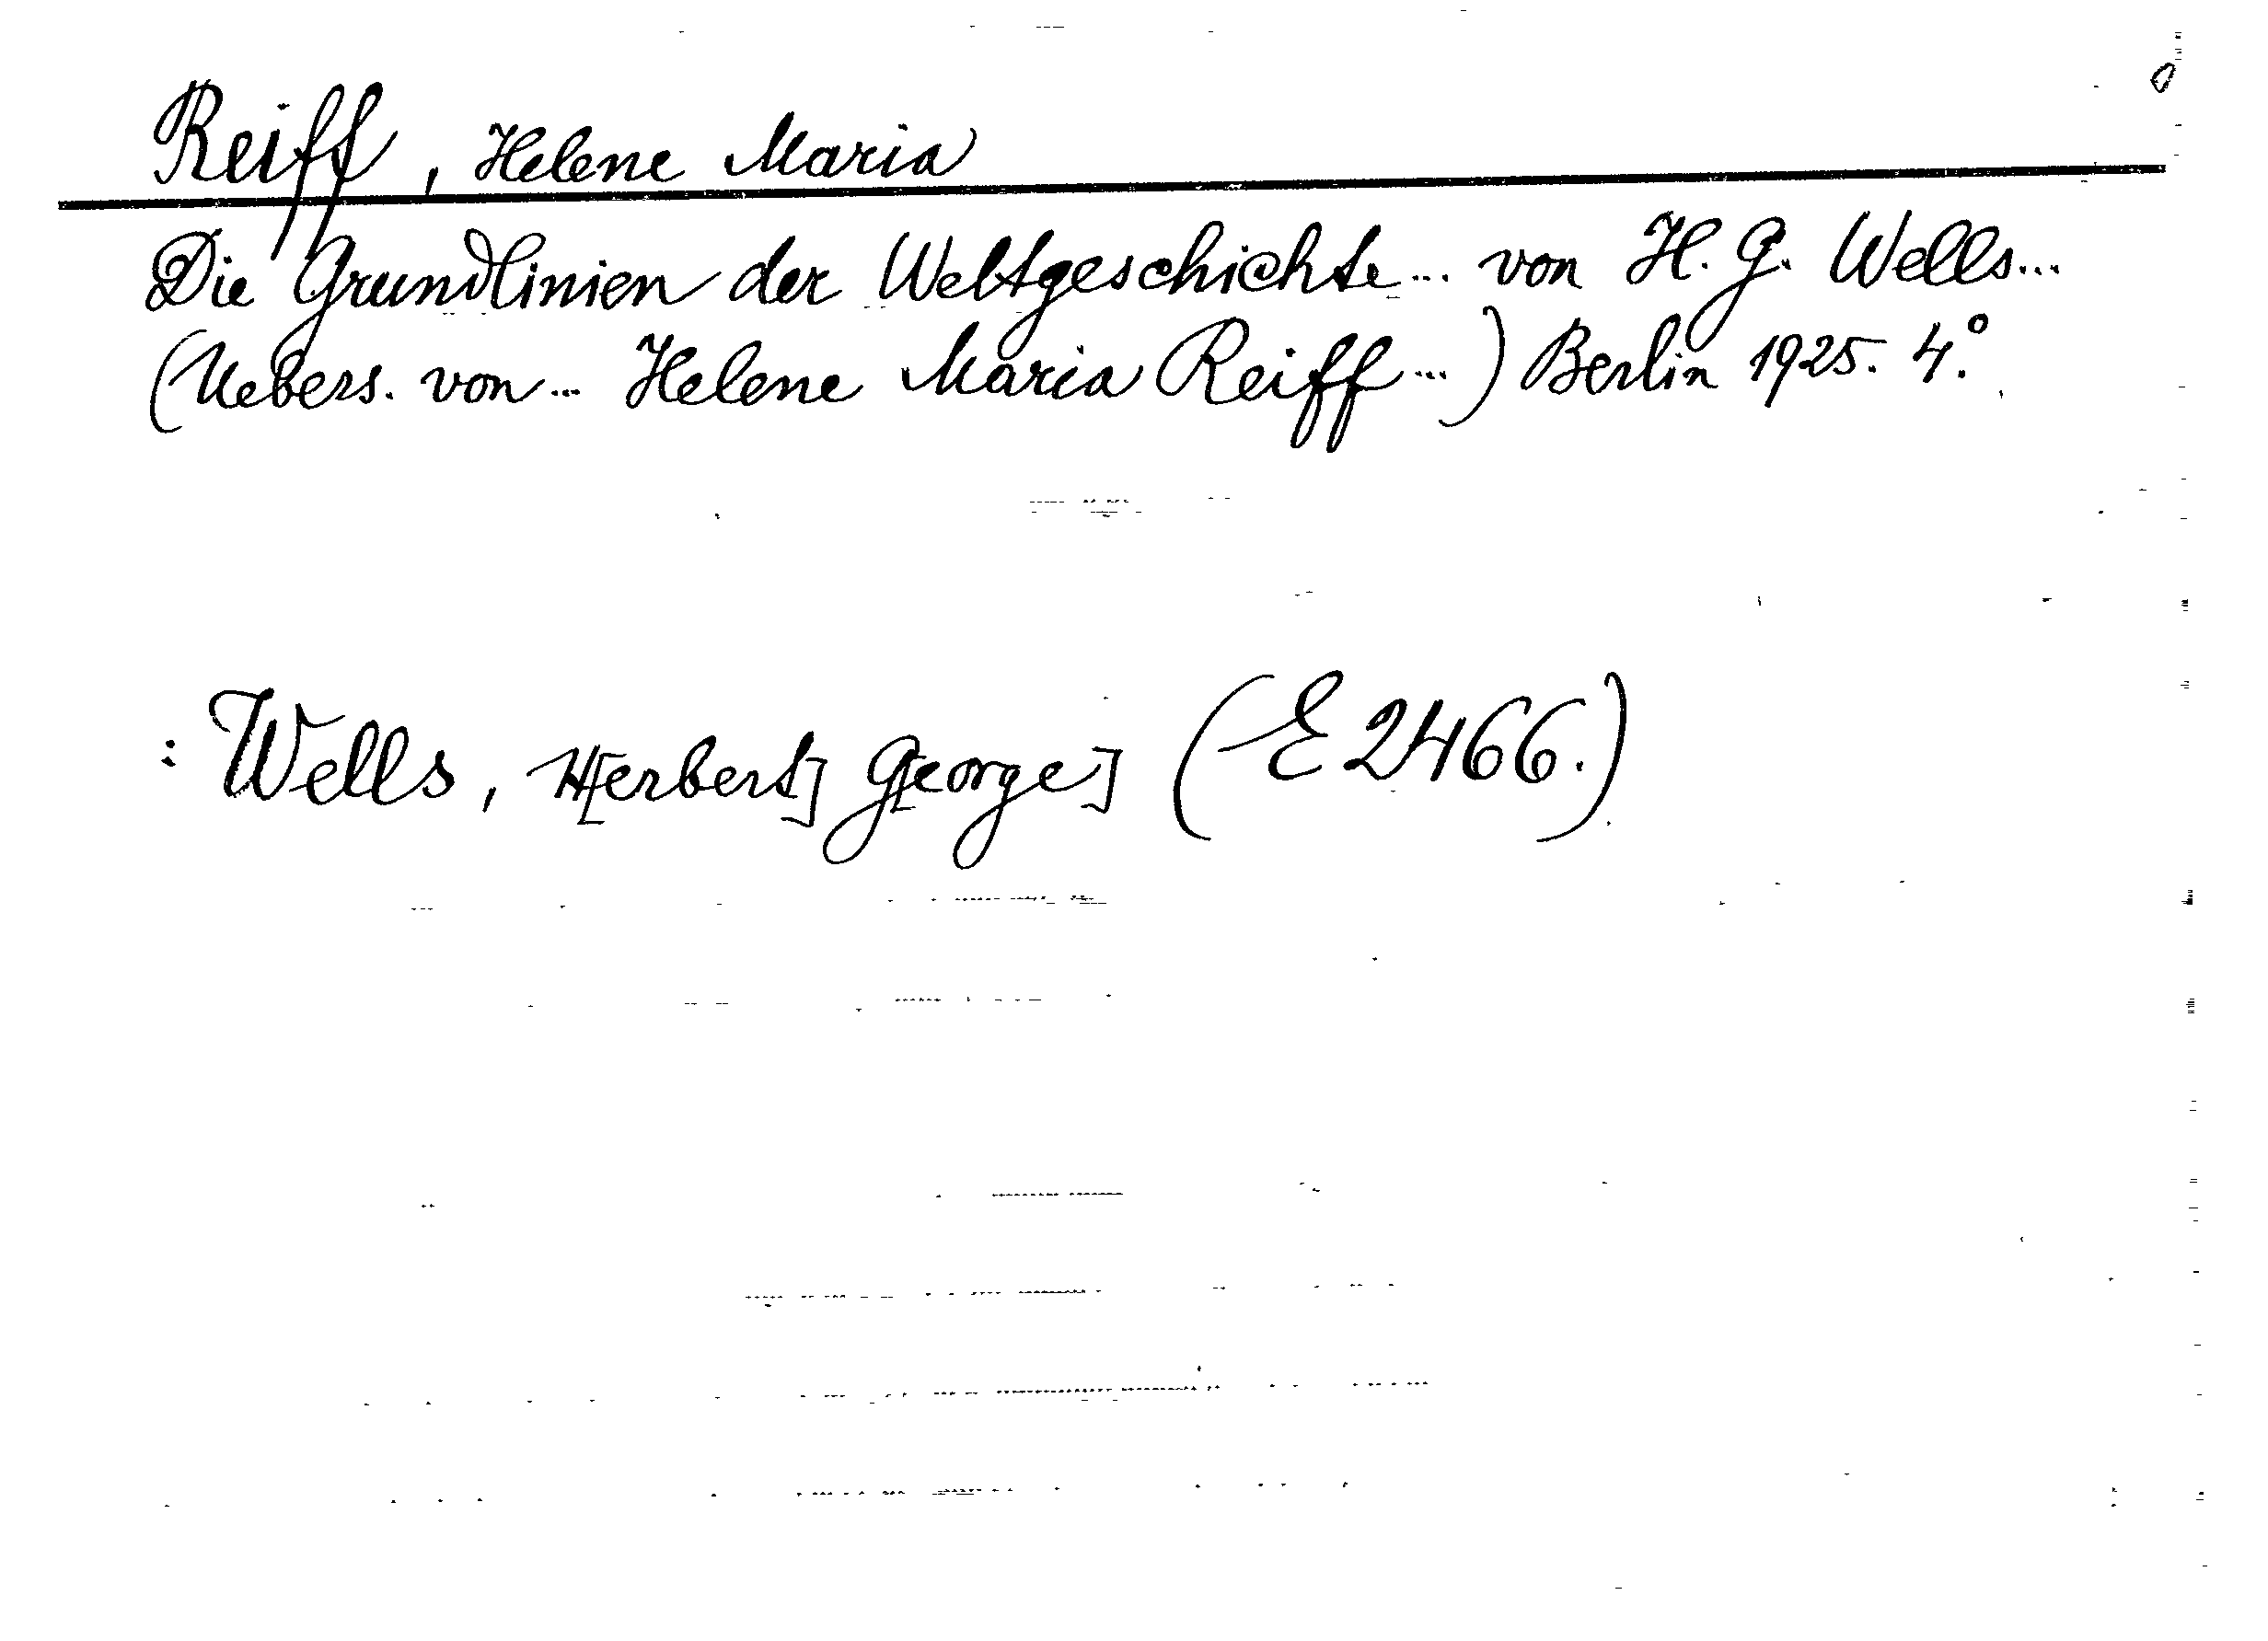 Reiff, Helene Maria
Die Grundlinien der Weltgeschichte... von H. G. Wells...
(Uebers. von... Helene Maria Reiff...) Berlin 1925. 4°.
: Wells, H[erbert] G[eorge] (E 2466.)